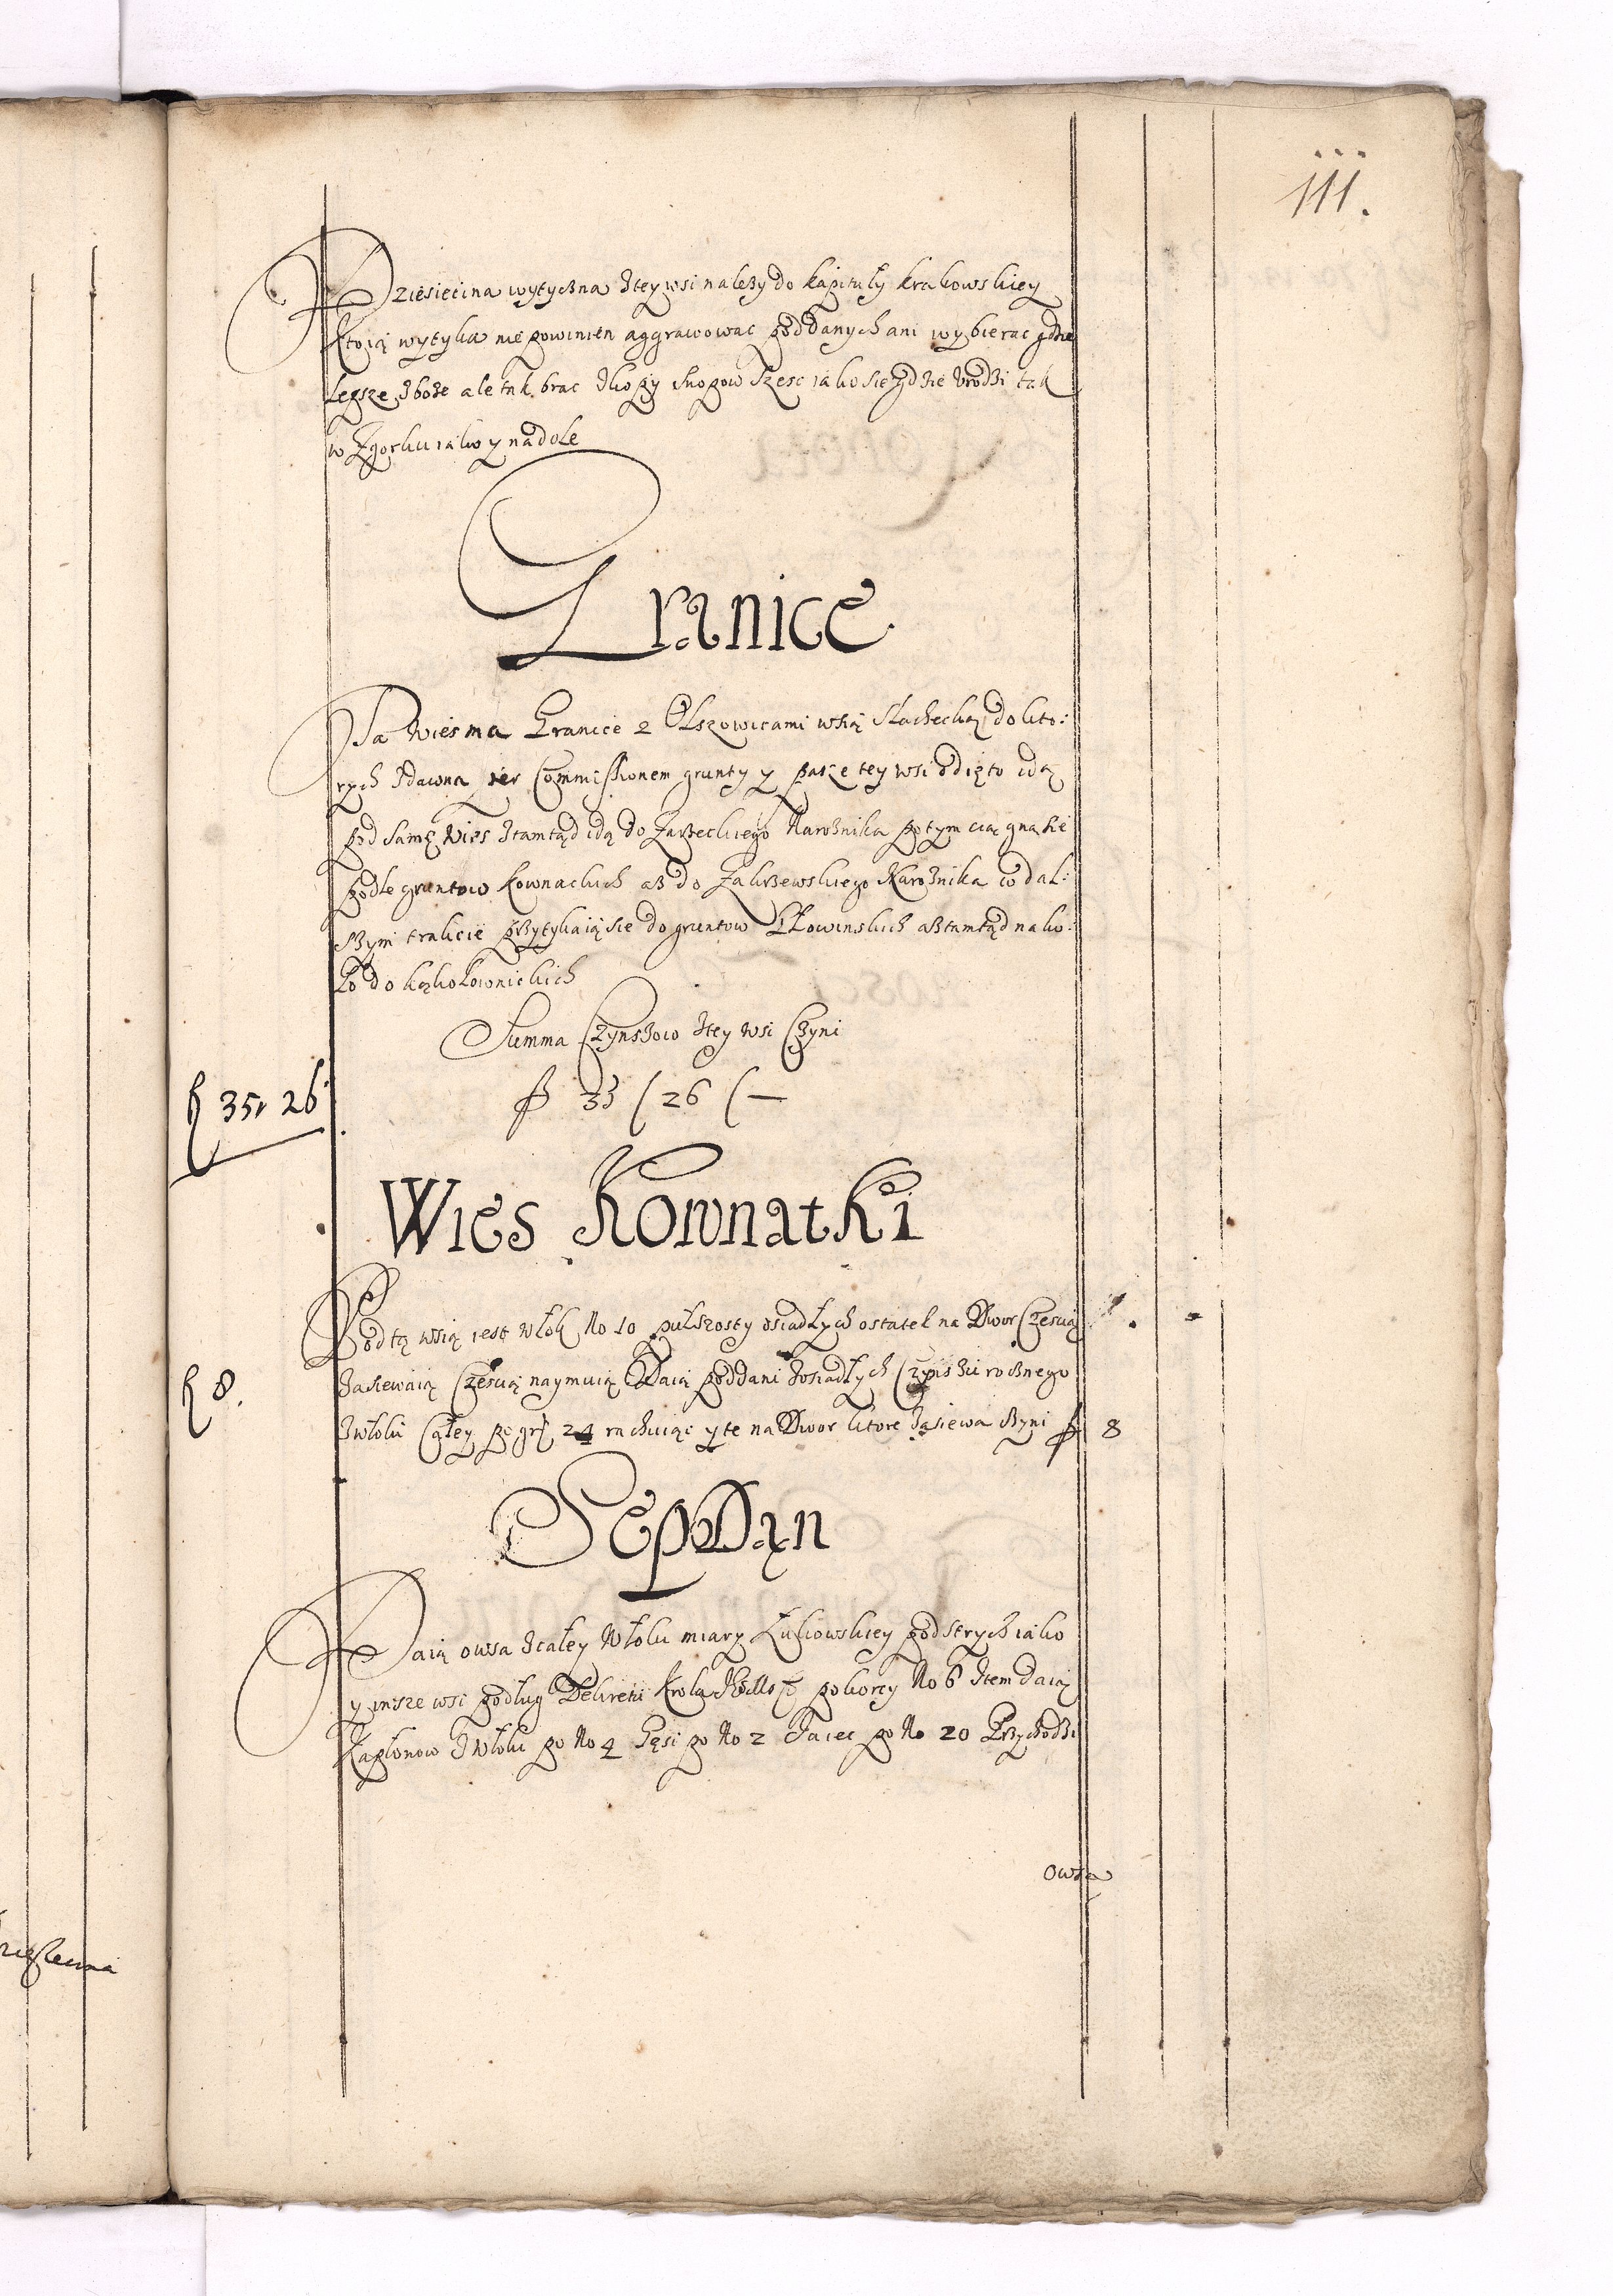 111.
Dziesiecina wytyczna Ztey wsi należy do Kapituły Krakowskiey
Ktorą wytyka nie powinien aggrawowac poddanych ani wybierac gdzie
Lepsze Zboże ale tak brac Zkopy snopow szesc iako sie gdzie Vrodzi tak
w Zgorku iako y na dole
Granice
Ta Wies ma Granice z Olszowicami wsią slachecką do kto:
rych Zdawna per Commissionem grunty y tey wsi odięto idą
pod samę Wies Ztamtąd idą do Zarzeckiego Narożnika potym ciągną sie
podle gruntow Kownackich aż do Zakrzewskiego Narożnika w dal:
szym trakcie przytykaią sie do gruntow aż tamtąd nako:
ło do
Summa Czynszow Ztey Wsi Czyni
f 35 / 26 / —
f 35 26
Wies Kownatki
Pod tą wsią iest Włok No 10 pułszosty osiadłych ostatek na Dwor Częscią
Zasiewaią Częscią naymuią Daią poddani Zosiadłych Czynszu rocznego
Zwłoki Całey po gr 24 rachuiąc y te na Dwor ktore Zasiewa czyni f 8
f 8.
Sep Dań
Daią owsa Zcałey Włoki miary Łukowskiey pod strych iako
y insze wsi podług Dekretu Krola po korcy No 6 Item daią
Kapłonow Zwłoki po No 4 Gęsi po No 2 Jaiec po No 20 Przychodzi
owsa